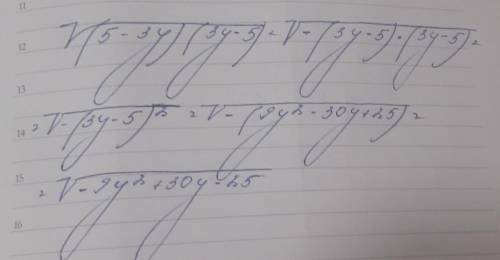 11
12 √(5-3y)(3y-5) = √-(3y-5)·(3y-5) =
13
14 = √-(3y-5)² = √-(9y²-30y+25) =
15 = √-9y²+30y-25
16